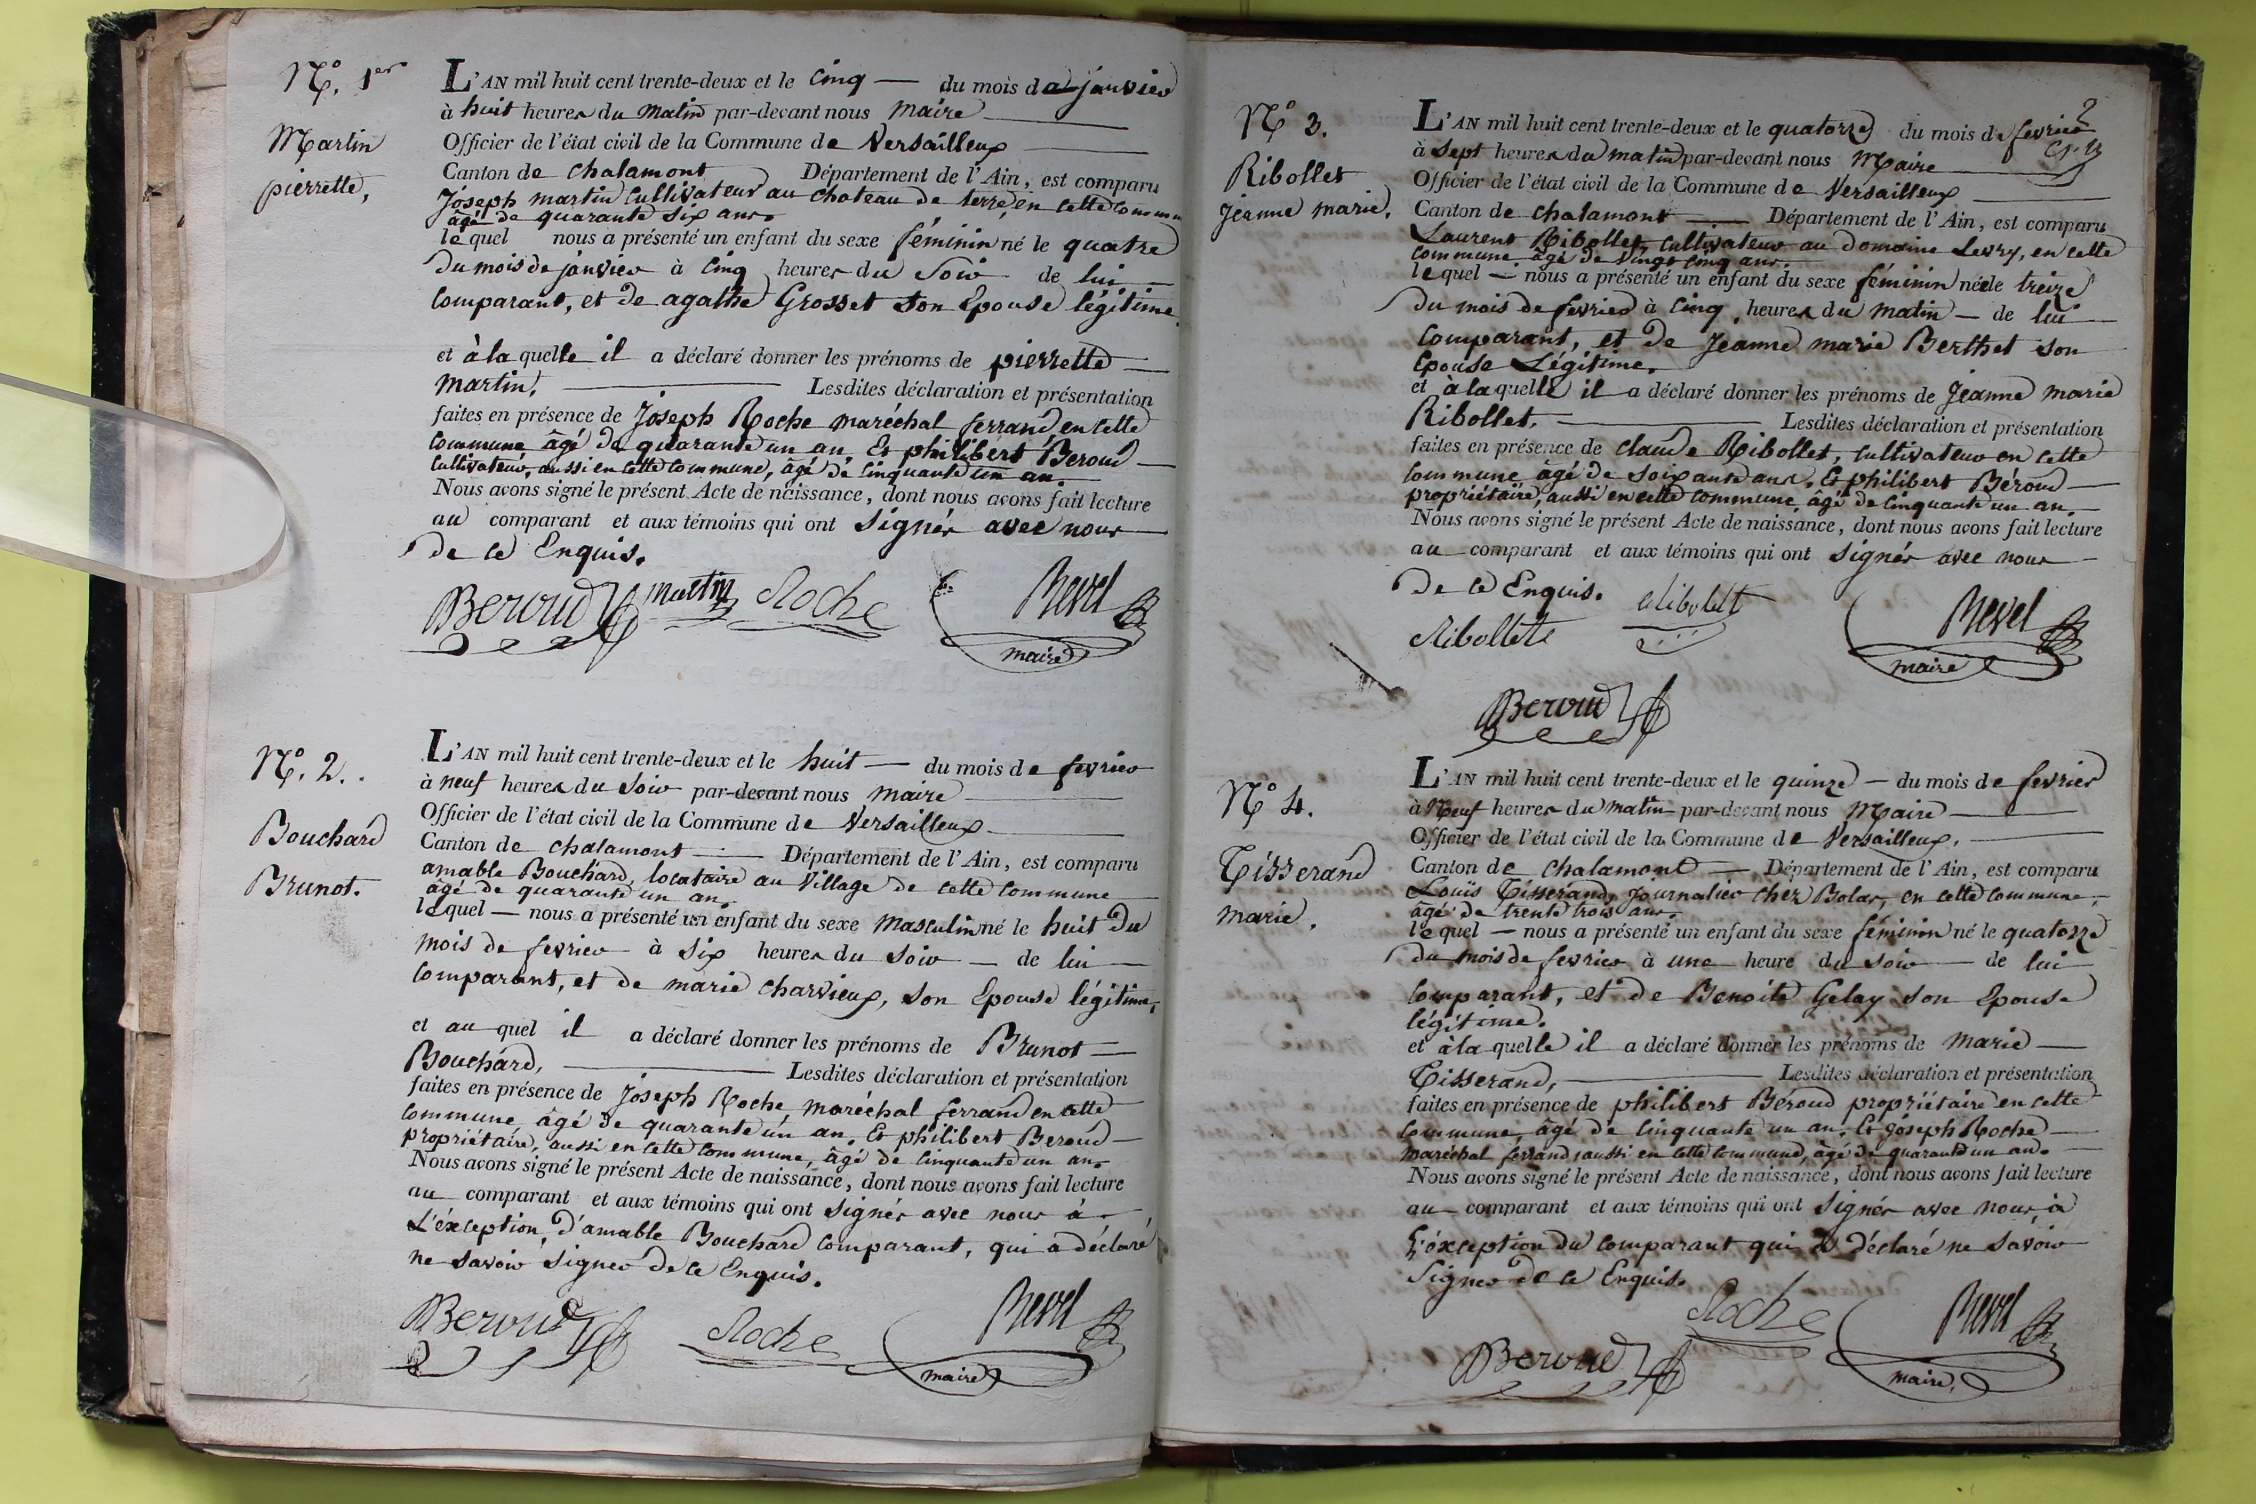 N.° 1er
Martin
pierrette,
L'AN mil huit cent trente-deux et le cinq — du mois de janvier
à huit heures du matin par-devant nous maire
Officier de l'état civil de la Commune de Versailleux
Canton de chalamont Département de l'Ain, est comparu
Joseph martin cultivateur au chateau de terre, en cette commune
âgé de quarante six ans.
lequel nous a présenté un enfant du sexe féminin né le quatre
du mois de janvier à cinq heures du soir de lui
comparant, et de agathe Grosset son Epouse légitime
et à la quelle il a déclaré donner les prénoms de pierrette
martin, Lesdites déclaration et présentation
faites en présence de Joseph Roche maréchal ferrand en cette
commune âgé de quarante un an. Et philibert Beroud
cultivateur, aussi en cette commune, âgé de cinquante un an.
Nous avons signé le présent Acte de naissance, dont nous avons fait lecture
au comparant et aux témoins qui ont signés avec nous
de ce Enquis.
Beroud martin Roche Revel
maire
N.° 2.
Bouchard
Brunot.
L'AN mil huit cent trente-deux et le huit — du mois de fevrier
à neuf heures du soir par-devant nous maire
Officier de l'état civil de la Commune de Versailleux
Canton de chalamont Département de l'Ain, est comparu
amable Bouchard, locataire au Village de cette commune
âgé de quarante un an.
lequel — nous a présenté un enfant du sexe masculin né le huit du
mois de fevrier à six heures du soir — de lui
comparant, et de marie charvieux, son Epouse légitime,
et au quel il a déclaré donner les prénoms de Brunot
Bouchard, Lesdites déclaration et présentation
faites en présence de Joseph Roche maréchal ferrand en cette
commune âgé de quarante un an. Et philibert Beroud
propriétaire, aussi en cette commune, âgé de cinquante un an.
Nous avons signé le présent Acte de naissance, dont nous avons fait lecture
au comparant et aux témoins qui ont signés avec nous à
L'éxception d'amable Bouchard comparant, qui a déclaré
ne savoir signer de ce Enquis.
Beroud Roche Revel
maire
2
N° 3.
Ribollet
Jeanne marie.
L'AN mil huit cent trente-deux et le quatorze du mois de fevrier
à sept heures du matin par-devant nous Maire
Officier de l'état civil de la Commune de Versailleux
Canton de chalamont — Département de l'Ain, est comparu
Laurent Ribollet, cultivateur au domaine Levry, en cette
commune âgé de vingt cinq ans.
lequel — nous a présenté un enfant du sexe féminin née le treize
du mois de fevrier à cinq heures du matin — de lui
comparant, et de Jeanne marie Berthet son
Epouse Légitime.
et à la quelle il a déclaré donner les prénoms de Jeanne marie
Ribollet. Lesdites déclaration et présentation
faites en présence de claude Ribollet, cultivateur en cette
commune âgé de soixante ans. Et philibert Béroud
propriétaire, aussi en cette commune, âgé de cinquante un an.
Nous avons signé le présent Acte de naissance, dont nous avons fait lecture
au comparant et aux témoins qui ont signés avec nous
de ce Enquis.
Ribollet Revel
maire
Beroud
N° 4.
Tisserand
marie.
L'AN mil huit cent trente-deux et le quinze — du mois de fevrier
à Neuf heures du matin par-devant nous Maire
Officier de l'état civil de la Commune de Versailleux.
Canton de chalamont — Département de l'Ain, est comparu
Louis Tisserand, Journalier chez Bolas, en cette commune,
âgé de trente trois ans.
lequel — nous a présenté un enfant du sexe féminin né le quatorze
du mois de fevrier à une heure du soir — de lui
comparant, et de Benoite Gelay son Epouse
légitime.
et à la quelle il a déclaré donner les prénoms de marie
Tisserand, Lesdites déclaration et présentation
faites en présence de philibert Béroud propriétaire en cette
commune, âgé de cinquante un an. Et joseph Roche
maréchal ferrand, aussi en cette commune, âgé de quarante un an.
Nous avons signé le présent Acte de naissance, dont nous avons fait lecture
au comparant et aux témoins qui ont signés avec nous, à
L'éxception du comparant qui a déclaré ne savoir
Signer de ce Enquis.
Beroud Roche Revel
maire,